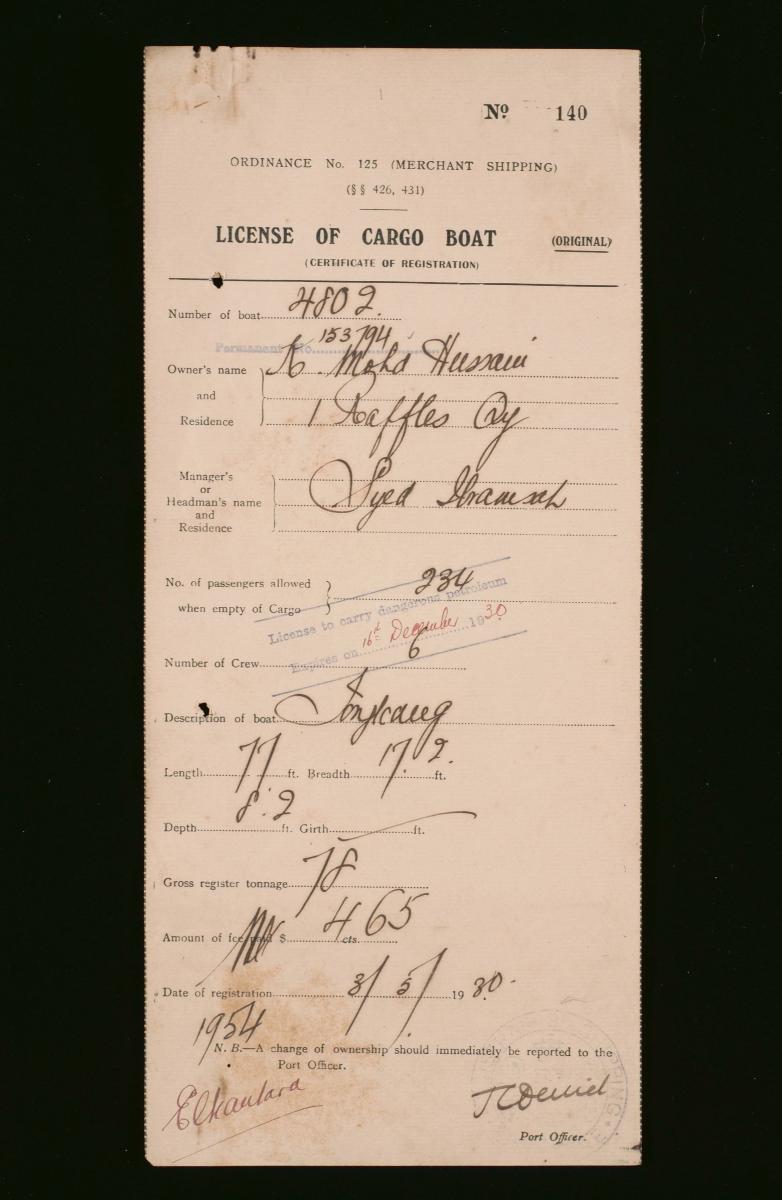 Nº 140
ORDINANCE No. 125 (MERCHANT SHIPPING)
(§ § 426, 431)
LICENSE OF CARGO BOAT (ORIGINAL)
(CERTIFICATE OF REGISTRATION)
Number of boat 4802.
Permanent No. 153794
Owner's name and Residence
Mohd Hussain
1 Raffles Qy
Manager's or Headman's name and Residence
Syed
No. of passengers allowed when empty of Cargo 234
License to carry dangerous petroleum
Expires on 16th December 1930
Number of Crew 6
Description of boat Tongkang
Length 77 ft. Breadth 17.2. ft.
Depth 8.2 ft. Girth ft.
Gross register tonnage 78
Amount of fee paid $ 4 cts. 65
Date of registration 3/5/1930.
1954
N. B.—A change of ownership should immediately be reported to the
Port Officer.
Elkantara
Port Officer.